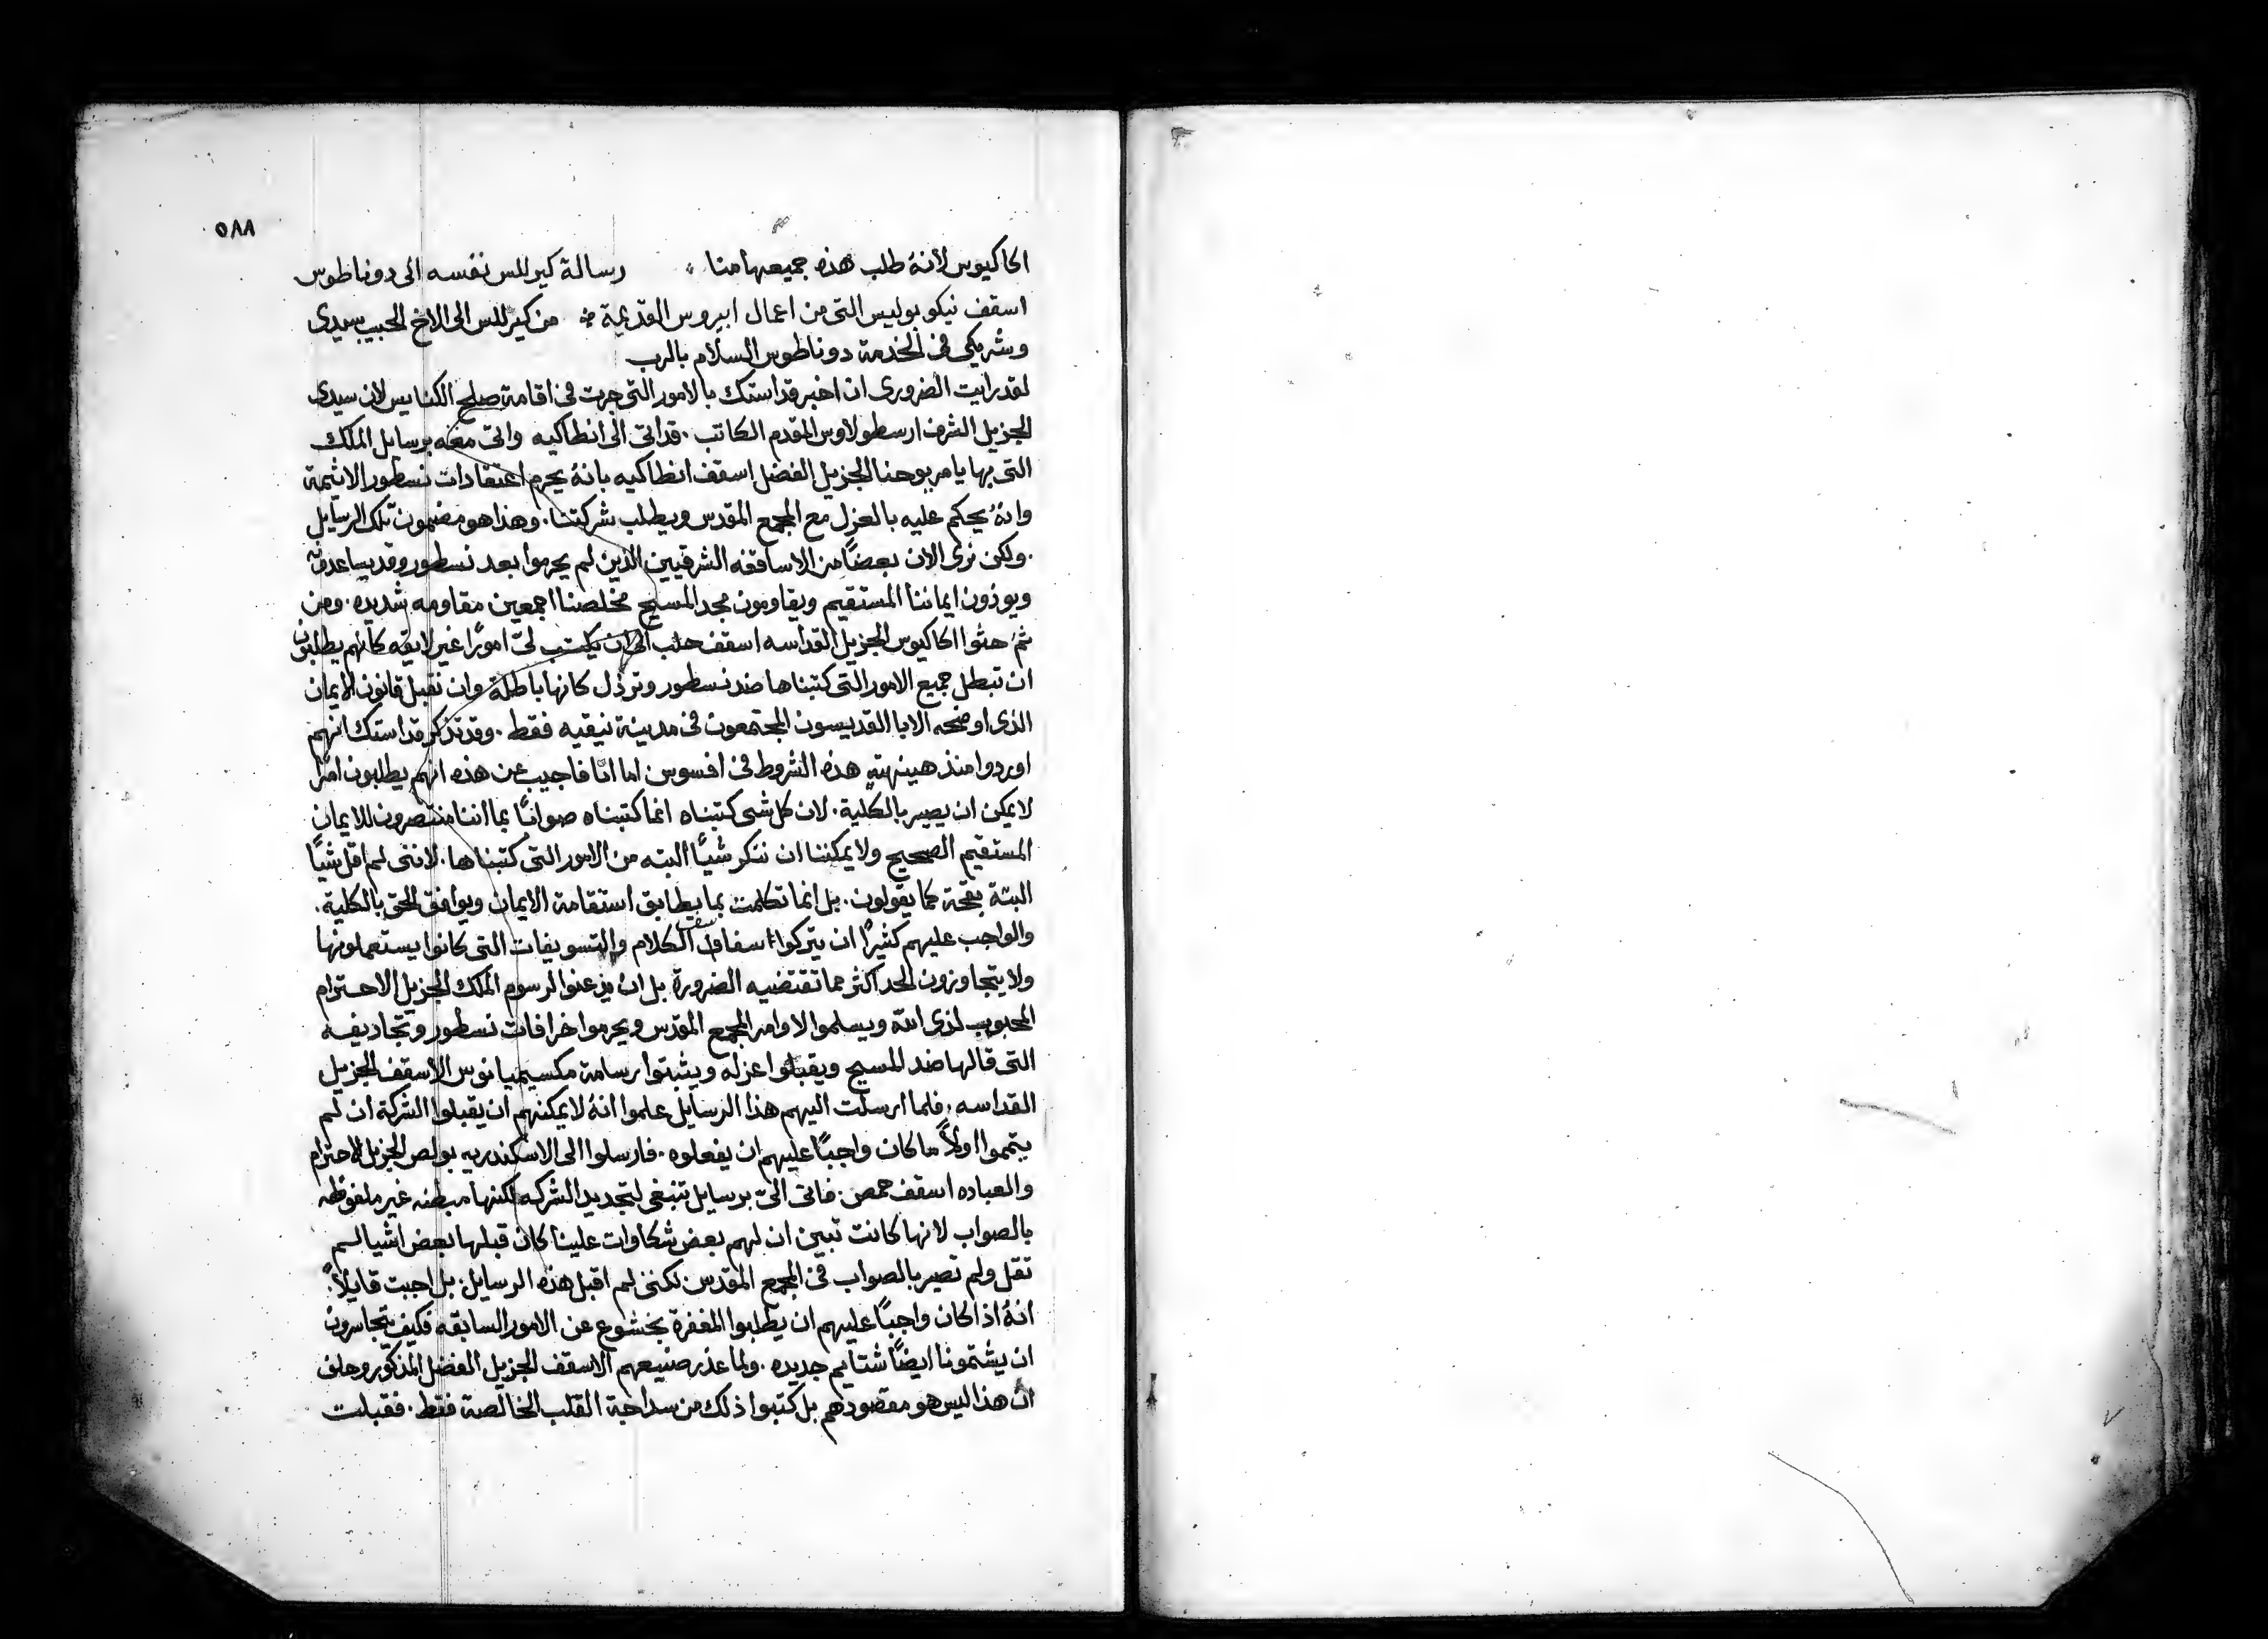 ٥٨٨
اكاكيوس لأنهُ طلب هذه جميعها منا ، رسالة كيرللس نفسه الى دوناطوس
اسقف نيكوبوليس التى من اعمال ابيروس القديمة ÷ من كيرللس الى الاخ الحبيب سيدى
وشريكى فى الخدمة دوناطوس السلام بالرب
لقد رايت الضرورى ان اخبر قداستك بالامور التى جرت فى اقامة صلح الكنايس لان سيدى
الجزيل الشرف ارسطولاوس المقدم الكاتب . قد اتى الى انطاكيه واتى معه برسايل الملك
التى بها يامر يوحنا الجزيل الفضل اسقف انطاكيه بانهُ يحرم اعتقادات نسطور الاثيمة
وانهُ يحكم عليه بالعزل مع المجمع المقدس ويطلب شركتنا . وهذا هو مضمون تلك الرسايل
. ولكن نرى الان بعضًا من الاساقفه الشرقيين الذين لم يحرموا بعد نسطور وقد يساعدونه
ويوذون ايماننا المستقيم ويقاومون مجد المسيح مخلصنا اجمعين مقاومه شديده . ومن
ثمَّ حثوا اكاكيوس الجزيل القداسه اسقف حلب الى ان يكتب لىّ امورًا غير لايقه كانهم يطلبون
ان تبطل جميع الامور التى كتبناها ضد نسطور وترذل كانها باطلة وان نقبل قانون الايمان
الذى اوضحه الابا القديسون المجتمعون فى مدينة نيقيه فقط . وقد تذكر قداستك انهم
اوردوا منذ هينهتهِ هذه الشروط فى افسوس . اما انا فاجيب عن هذه انهم يطلبون امرًا
لا يمكن ان يصير بالكلية . لان كل شى كتبناه انما كتبناه صوابًا بما اننا منتصرون للايمان
المستقيم الصحيح ولا يمكننا ان ننكر شيًا البته من الامور التى كتبناها . لاننى لم اقل شيًا
البتة بقحة كما يقولون . بل انما تكلمت بما يطابق استقامة الايمان ويوافق الحق بالكلية .
والواجب عليهم كثيرًا ان يتركوا الكلام والتسويفات التى كانوا يستعملونها
ولا يتجاوزون الحد اكثر مما تقتضيه الضرورة بل ان يذعنوا لرسوم الملك الجزيل الاحترام
المحبوب لذى الله ويسلموا لاوامر المجمع المقدس ويحرموا خرافات نسطور وتجاديفه
التى قالها ضد المسيح ويقبلوا عزله ويثبتوا رسامة مكسيميانوس الاسقف الجزيل
القداسه . فلما ارسلت اليهم هذا الرسايل علموا انهُ لا يمكنهم ان يقبلوا الشركة ان لم
يتمموا اولاً ما كان واجبًا عليهم ان يفعلوه . فارسلوا الى الاسكندريه بولص الجزيل الاحترام
والعباده اسقف حمص . فاتى الىّ برسايل تنبغى لتجديد الشركه لكنها مبطنه غير ملفوظه
بالصواب لانها كانت تبين ان لهم بعض شكاوات علينا كان قبلها بعض اشيا لم
تقل ولم تصير بالصواب فى المجمع المقدس . لكننى لم اقبل هذه الرسايل . بل اجبت قايلاً :
انهُ اذا كان واجبًا عليهم ان يطلبوا المغفرة بخشوع عن الامور السابقه فكيف يتجاسرون
ان يشتمونا ايضًا شتايم جديده . ولما عذر صنيعهم الاسقف الجزيل الفضل المذكور وحلف
ان هذا ليس هو مقصودهم بل كتبوا ذلك من سداجة القلب الخالصة فقط . فقبلت